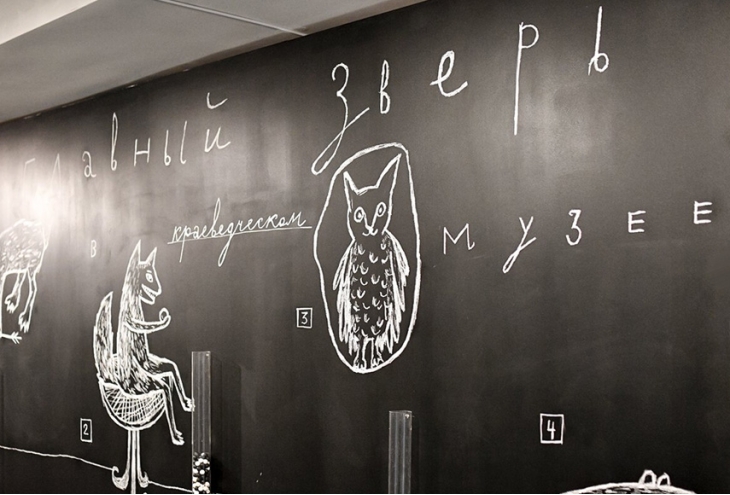 главный зверь
в краеведческом музее
3
2
4